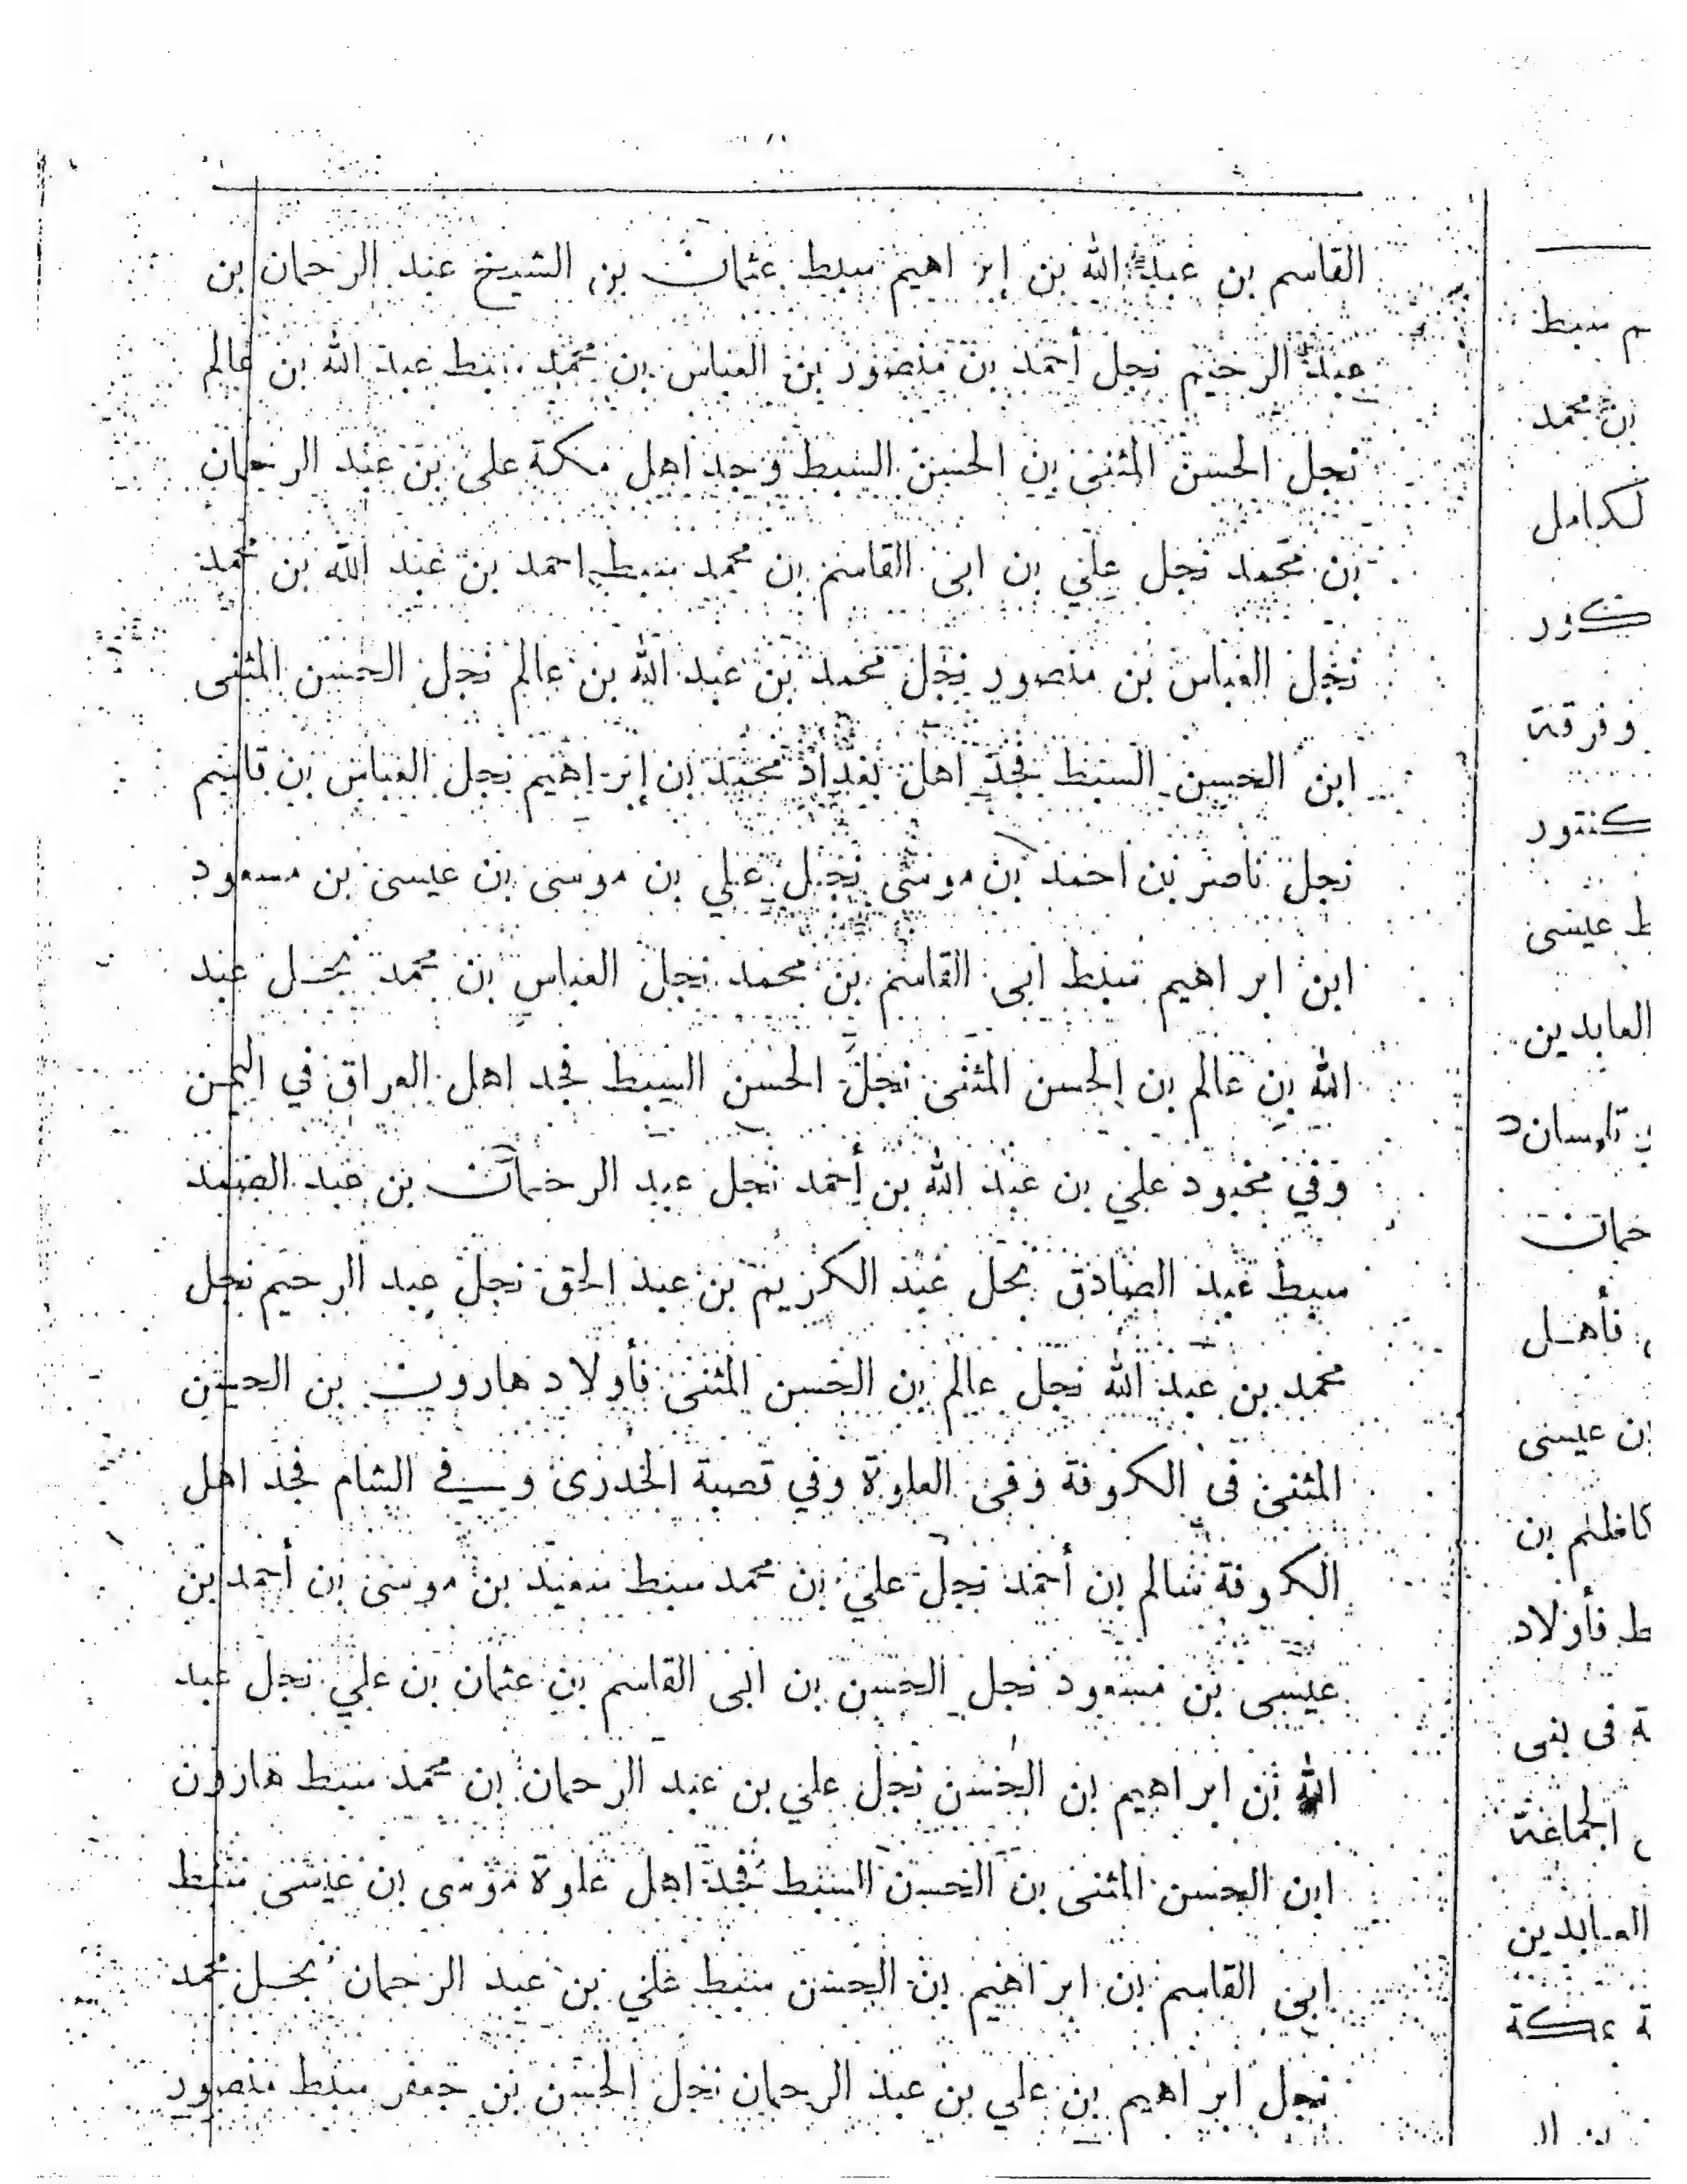 القاسم بن عبد الله بن إبراهيم سبط عثمان بن الشيخ عبد الرحمان بن
عبد الرحيم نجل أحمد بن منصور بن العباس بن محمد سبط عبد الله بن عالم
نجل الحسن المثنى بن الحسن السبط وجد اهل مكة على بن عبد الرحمان
بن محمد نجل علي بن ابى القاسم بن محمد سبط احمد بن عبد الله بن محمد
نجل العباس بن منصور نجل محمد بن عبد الله بن عالم نجل الحسن المثنى
ابن الحسن السبط فجد اهل بغداد محمد بن إبراهيم نجل العباس بن قاسم
نجل ناصر بن احمد بن موسى نجل علي بن موسى بن عيسى بن مسعود
ابن ابراهيم سبط ابى القاسم بن محمد نجل العباس بن محمد نجل عبد
الله بن عالم بن الحسن المثنى نجل الحسن السبط فجد اهل العراق في اليمن
وفي علي بن عبد الله بن أحمد نجل عبد الرحمان بن عبد الصمد
سبط عبد الصادق نجل عبد الكريم بن عبد الحق نجل عبد الرحيم نجل
محمد بن عبد الله نجل عالم بن الحسن المثنى فأولاد هارون بن الحسن
المثنى فى الكوفة وفى العلوة وفي قصبة الخدرى وفي الشام فجد اهل
الكوفة سالم بن أحمد نجل علي بن محمد سبط سعيد بن موسى بن أحمد بن
عيسى بن مسعود نجل الحسن بن ابى القاسم بن عثمان بن علي نجل عبد
الله بن ابراهيم بن الحسن نجل علي بن عبد الرحمان بن محمد سبط هارون
ابن الحسن المثنى بن الحسن السبط فجد اهل علوة موسى بن عيسى سبط
ابى القاسم بن ابراهيم بن الحسن سبط علي بن عبد الرحمان نجل محمد
نجل ابراهيم بن علي بن عبد الرحمان نجل الحسن بن جعفر سبط منصور
م سبط
بن محمد
لكامل
وفرقة
كنتور
ط عيسى
العابدين
حمان
فأهل
بن عيسى
بن
ط فأولاد
ة فى بنى
الجماعة
العابدين
ة عكة